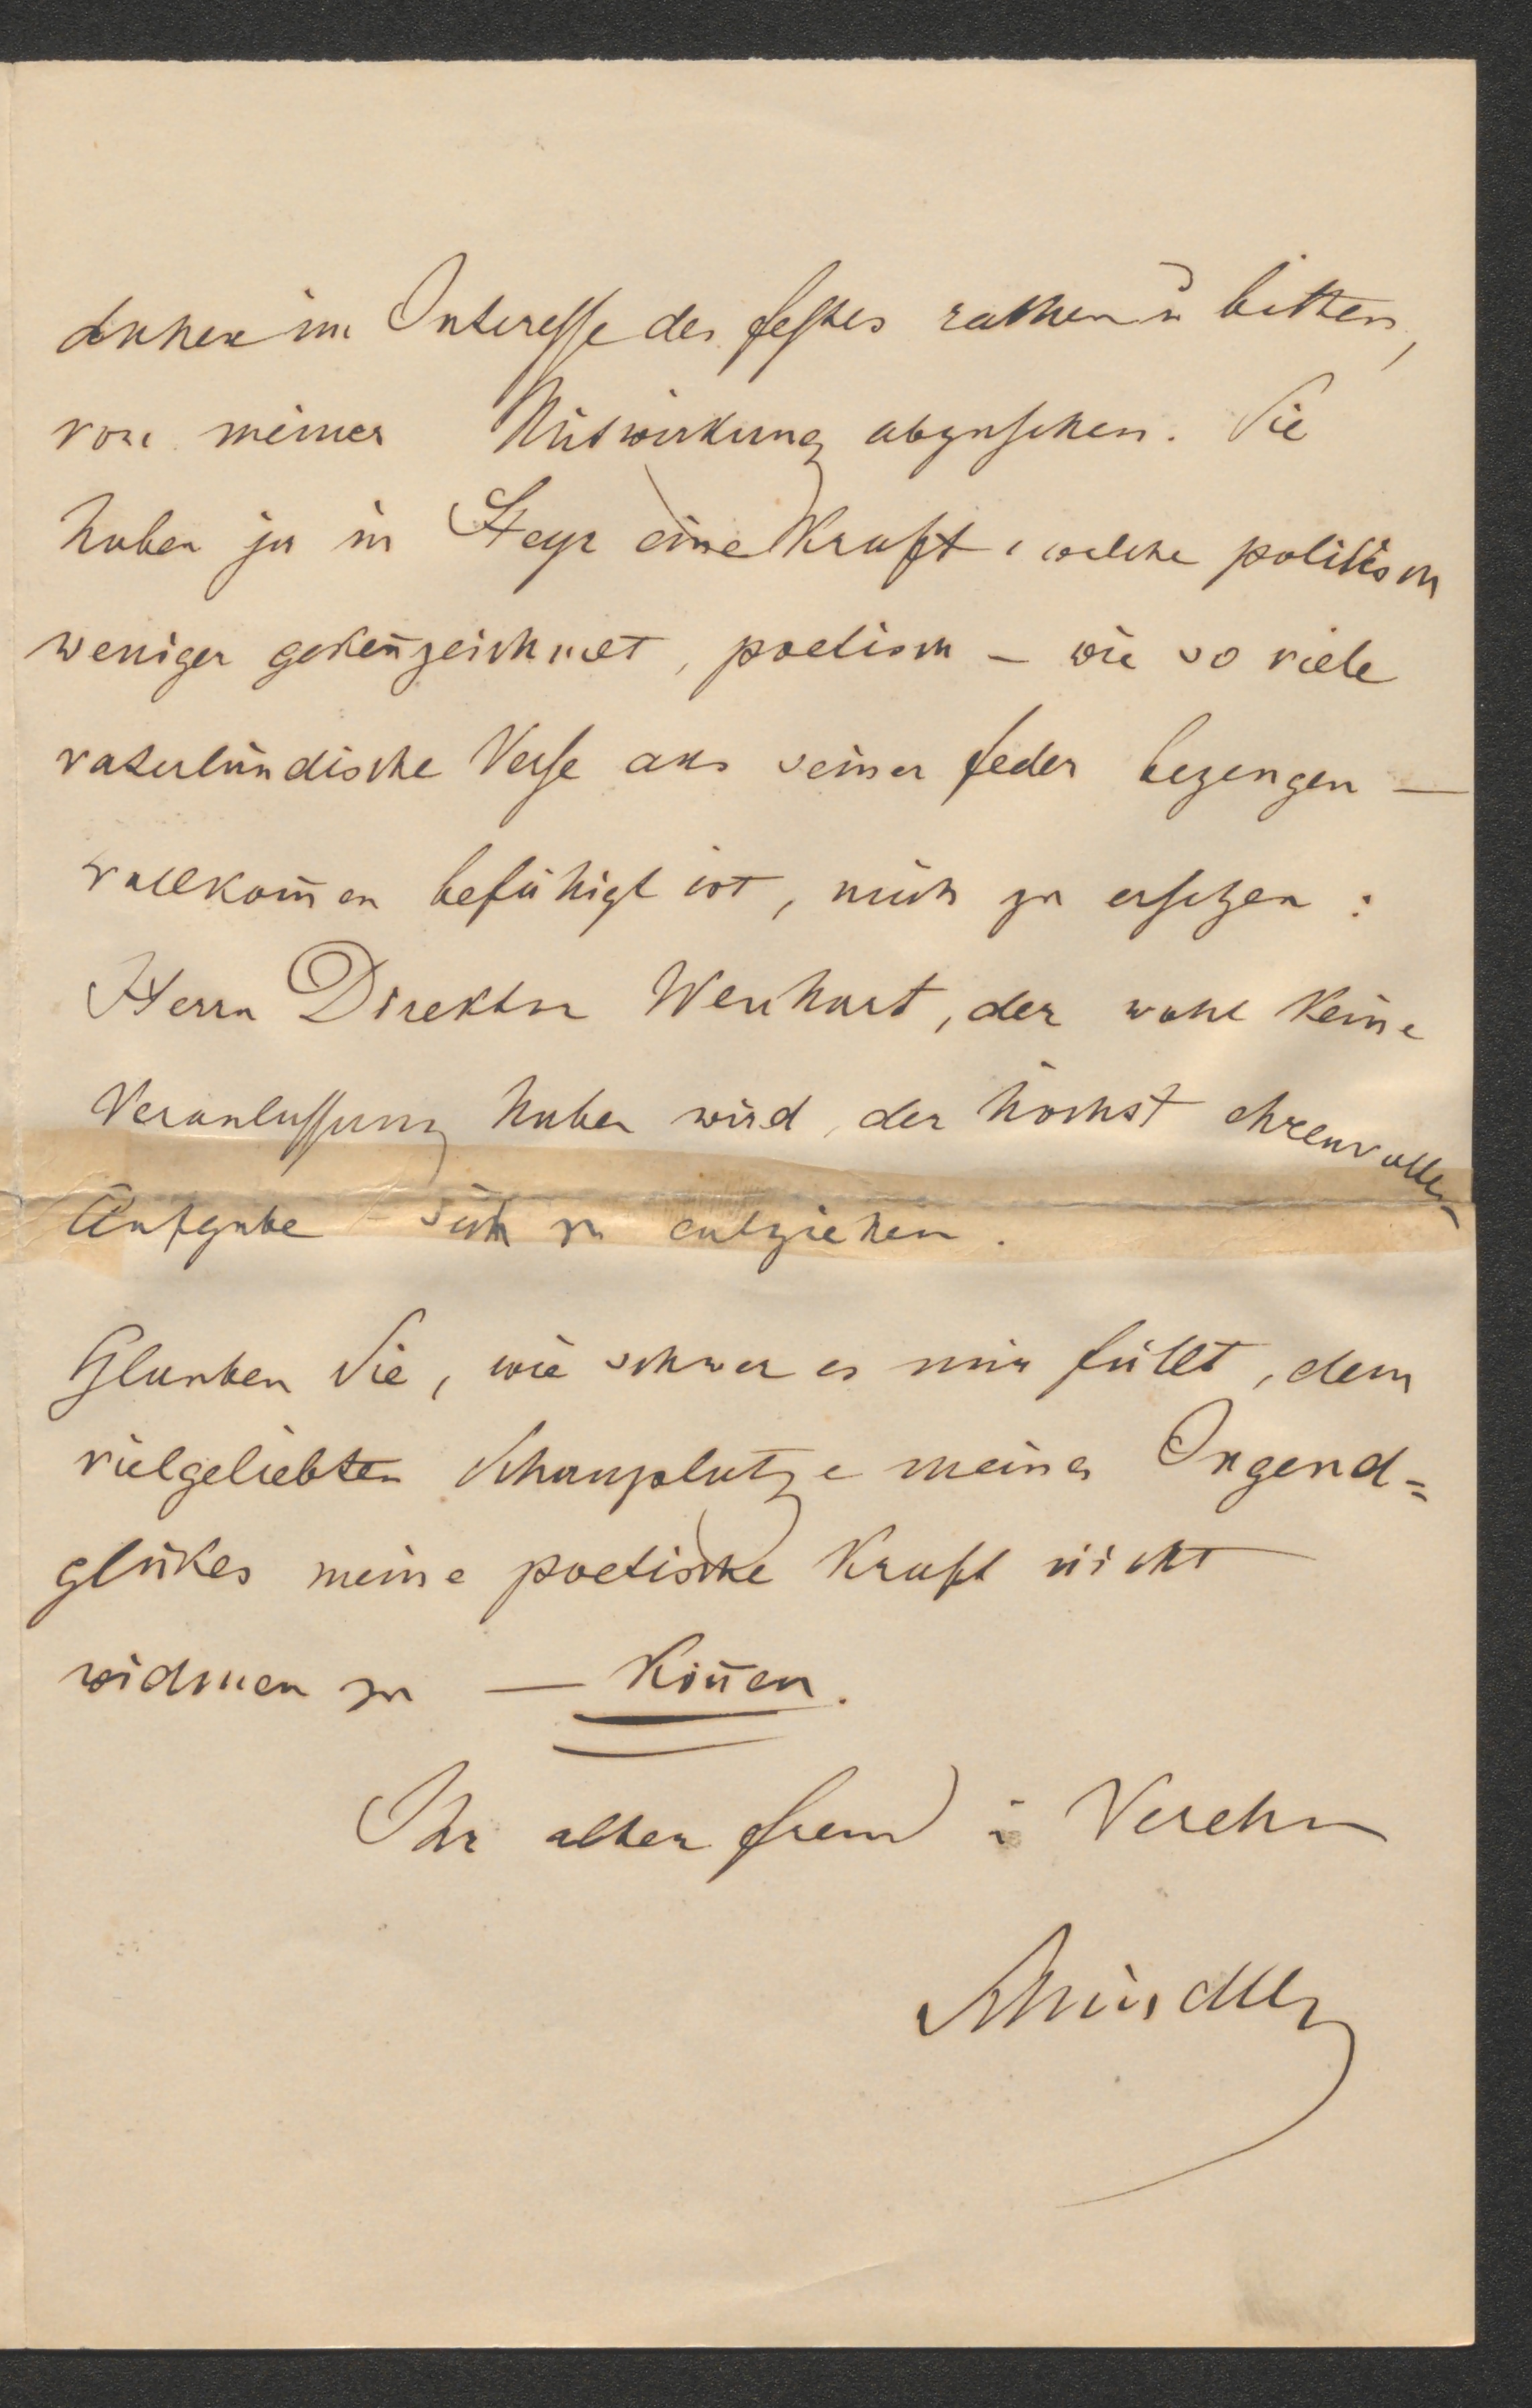 daher im Interesse des Festes rathen u bitten,
von meiner Mitwirkung abzusehen. Sie
haben ja in Steyr eine Kraft, welche politisch
weniger geken̄zeichnet, poetisch – wie so viele
vaterländische Verse aus seiner Feder bezeugen –
vollkom̄en befähigt ist, mich zu ersetzen:
Herrn Direktor Wenhart, der wohl keine
Veranlassung haben wird, der höchst ehrenvollen
Aufgabe sich zu entziehen.
Glauben Sie, wie schwer es mir fällt, dem
vielgeliebten Schauplatze meines Jugend=
glükes meine poetische Kraft nicht
widmen zu – kön̄en.
Ihr alter Freund u Verehrer
Schindler